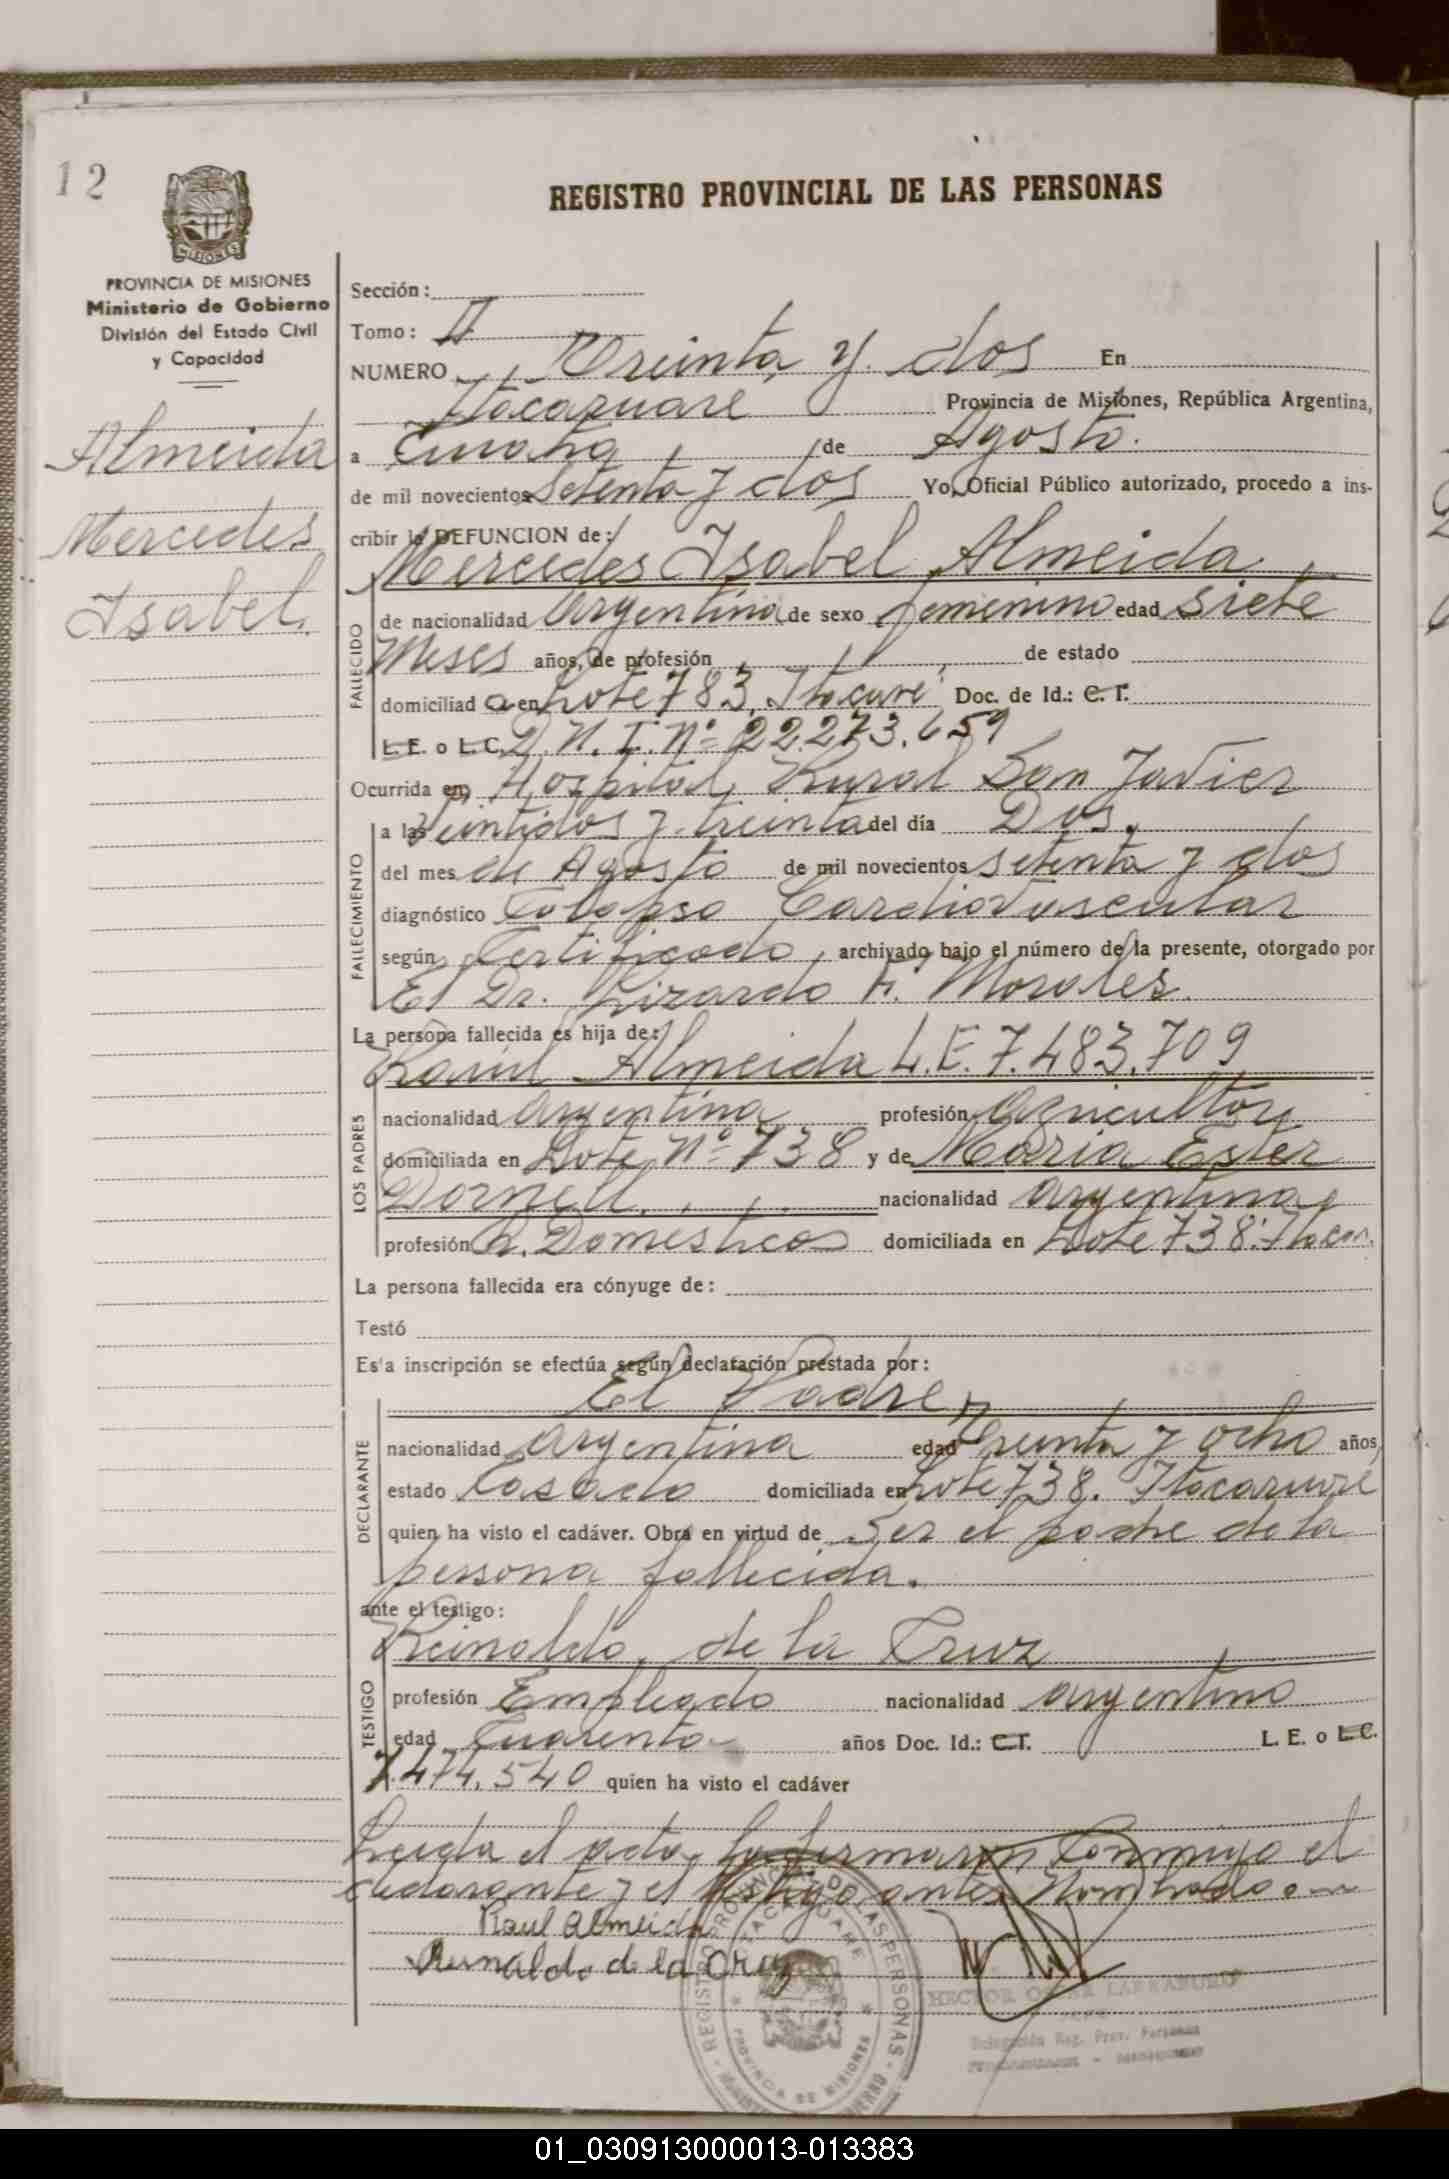 12
REGISTRO PROVINCIAL DE LAS PERSONAS
MISIONES
PROVINCIA DE MISIONES
Ministerio de Gobierno
División del Estado Civil
y Capacidad
Almeida
Mercedes
Isabel.
Sección:
Tomo: II
NUMERO Treinta y dos En
Itacaruaré Provincia de Misiones, República Argentina,
a Cuatro de Agosto.
de mil novecientos setenta y dos Yo, Oficial Público autorizado, procedo a ins-
cribir la DEFUNCION de:
Mercedes Isabel Almeida
FALLECIDO
de nacionalidad Argentina de sexo femenino edad siete
Meses años, de profesión de estado
domiciliad a en Lote 783, Itacuré Doc. de Id.: C. I.
L.E. o L.C. D.N.I. Nº 22.273.659
Ocurrida en Hospital Rural San Javier
FALLECIMIENTO
a las Veintidos y treinta del día Dos.
del mes de Agosto de mil novecientos setenta y dos
diagnóstico Colapso Cardiovascular
según Certificado, archivado bajo el número de la presente, otorgado por
El Dr. Lizardo F. Morales.
La persona fallecida es hija de:
Raúl Almeida L.E. 7.483.709
LOS PADRES
nacionalidad argentina profesión agricultor
domiciliada en Lote Nº 738 y de Maria Ester
Dornell. nacionalidad argentina
profesión Q. Domesticos domiciliada en Lote 738. Itacar.
La persona fallecida era cónyuge de:
Testó
Esta inscripción se efectúa según declaración prestada por:
El Padre
DECLARANTE
nacionalidad argentina edad Treinta y ocho años,
estado Casado domiciliada en Lote 738. Itacaruaré
quien ha visto el cadáver. Obra en virtud de Ser el padre de la
persona fallecida.
ante el testigo:
Reinaldo de la Cruz
TESTIGO
profesión Empleado nacionalidad argentino
edad Cuarenta años Doc. Id.: C.I. L. E. o L.C.
7.474.540 quien ha visto el cadáver
Leída el acta, la firmaron conmigo el
declarante y el testigo antes nombrado.
Raul Almeida
Reinaldo de la Cruz
REGISTRO PROVINCIAL DE LAS PERSONAS
ITACARUARE
PROVINCIA DE MISIONES
HECTOR OSCAR LARRABURU
JEFE
Delegación Reg. Prov. Personas
01_030913000013-013383